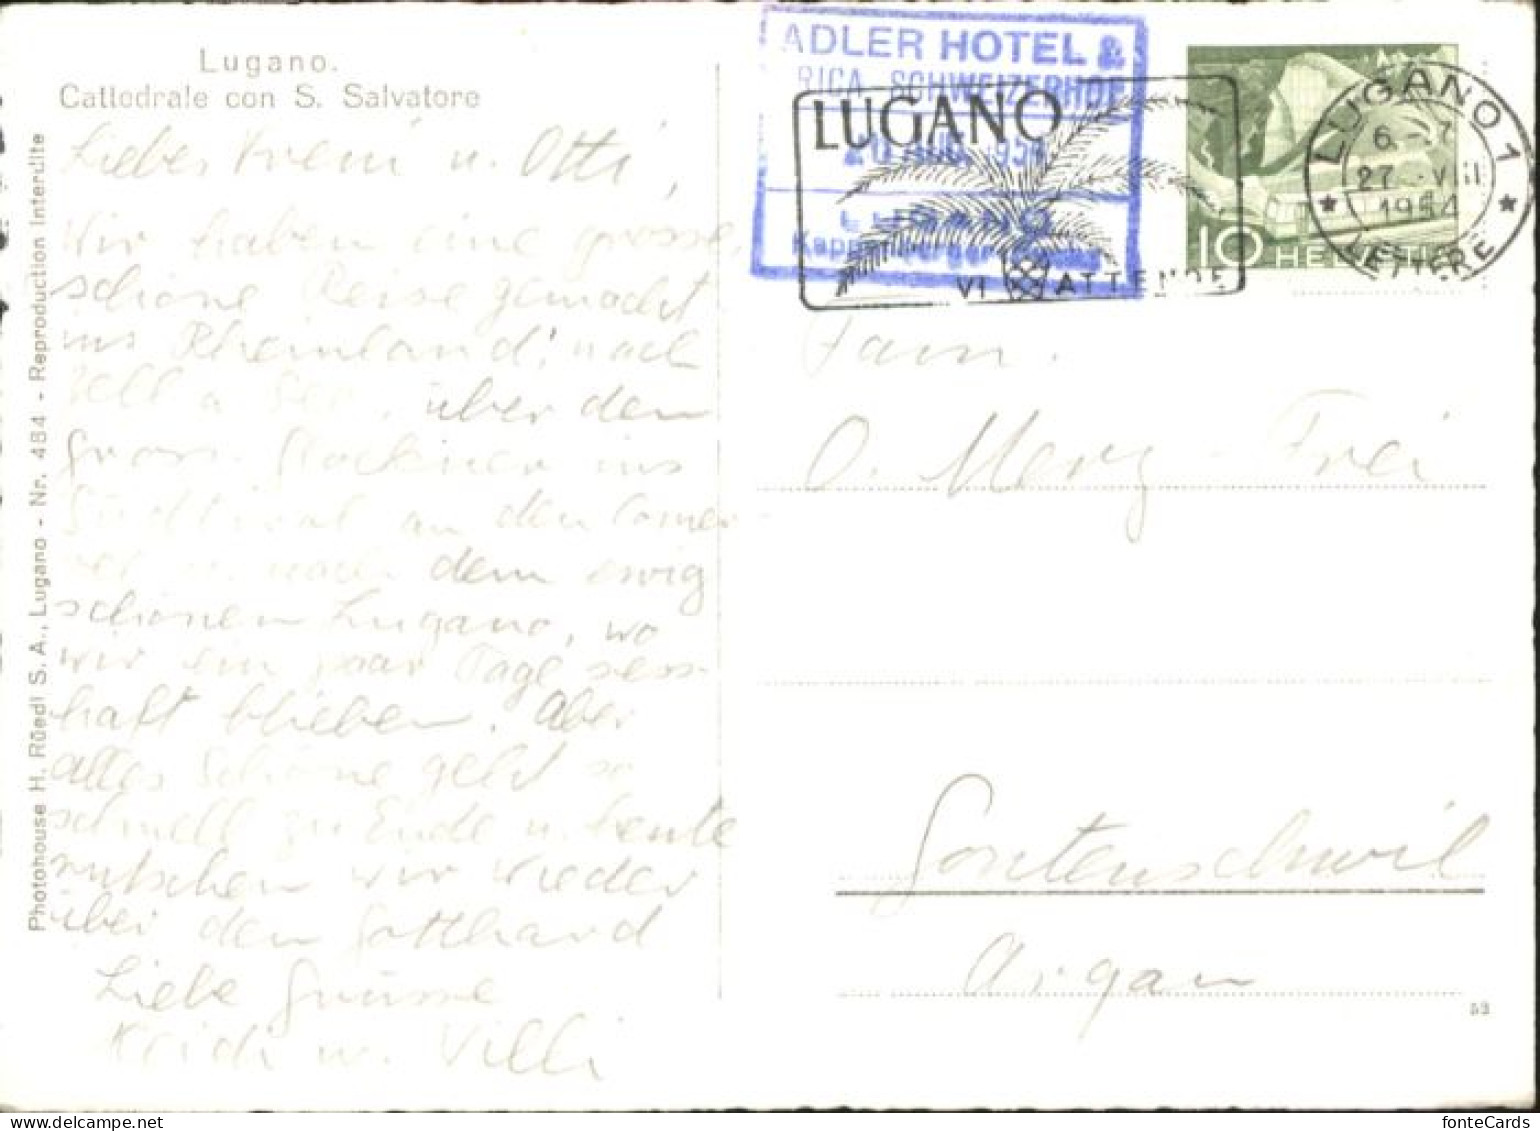 Lugano.
Cattedrale con S. Salvatore
Photohouse H. Rüedi S. A., Lugano - Nr. 484 - Reproduction interdite
Liebes Vreni u. Otti,
Wir haben eine grosse,
schöne Reise gemacht
ins Rheinland, nach
Zell a See, über den
Gross Glockner ins
Südtirol an den Comer
see u. nach dem ewig
schönen Lugano, wo
wir ein paar Tage sess-
haft blieben. Aber
alles Schöne geht so
schnell zu Ende u. heute
rutschen wir wieder
über den Gotthard
Liebe Grüsse
u. Willi
ADLER HOTEL &
ERICA SCHWEIZERHOF
20 AUG. 1954
LUGANO
LUGANO
VI ATTENDE
10 HELVETIA
LUGANO 1
6.-7
27.VIII
1954
LETTERE
Fam.
O. Merz-Frei
Gontenschwil
Argau
53
fonteCards